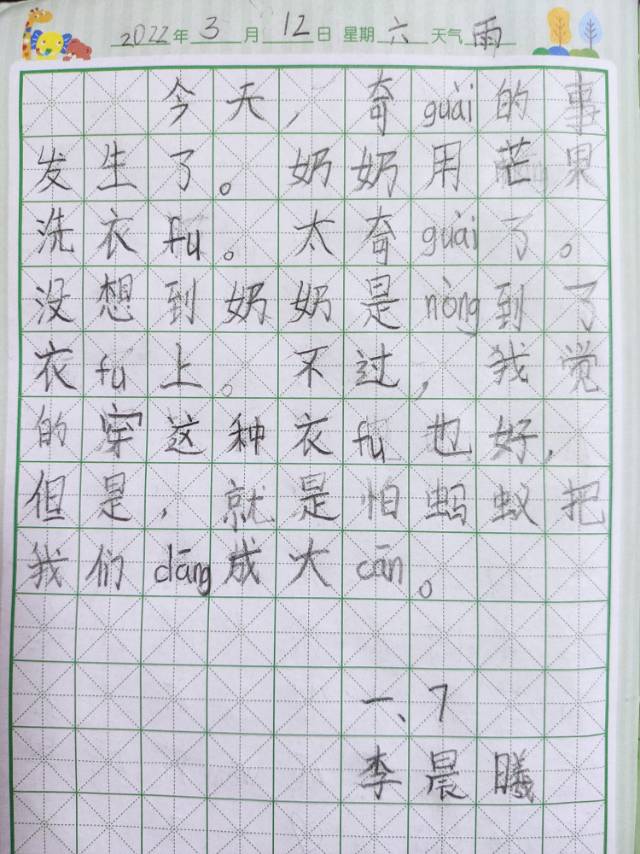 2022年3月12日 星期六 天气雨
今天，奇guài的事
发生了。奶奶用芒果
洗衣fu。太奇guài了。
没想到奶奶是nòng到了
衣fu上。不过，我觉
的穿这种衣fu也好，
但是，就是怕蚂蚁把
我们dāng成大cān。
一、7
李晨曦